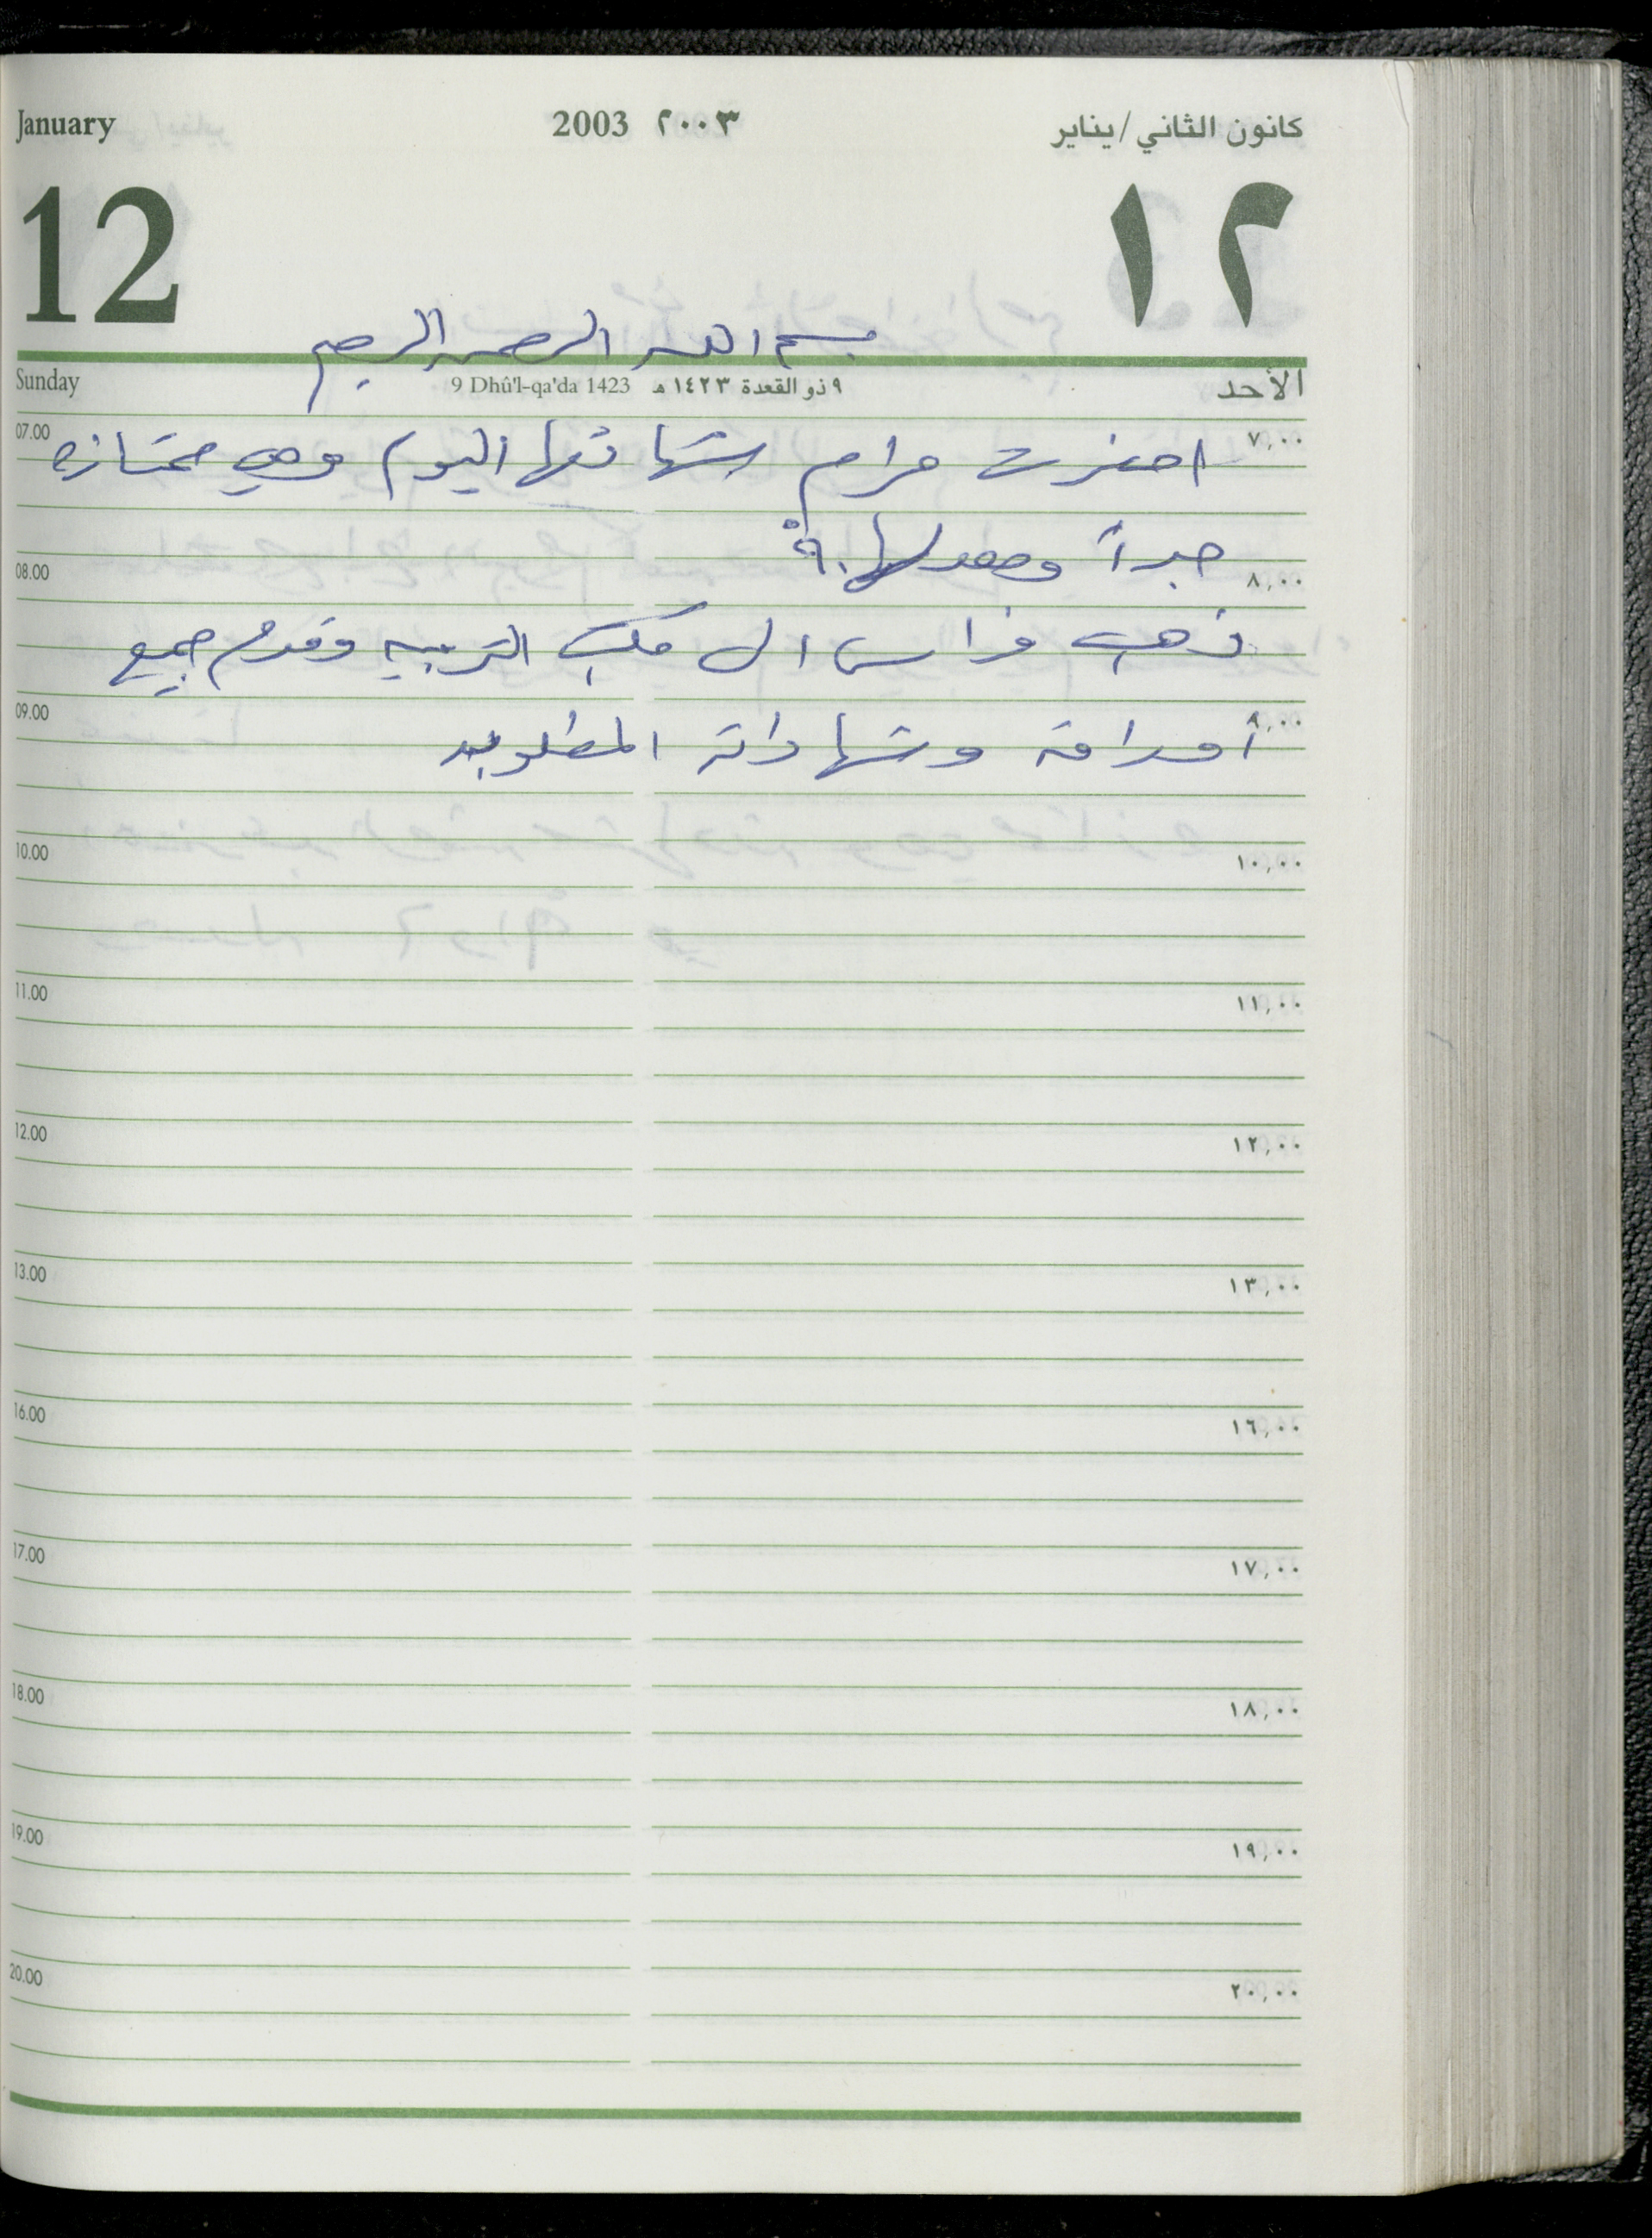 January 2003 ٢٠٠٣ كانون الثاني/يناير
12 ١٢
بسم الله الرحمن الرحيم
Sunday 9 Dhû'l-qa'da 1423 ٩ ذو القعدة ١٤٢٣ هـ الأحد
07.00 ٧,٠٠
احضرت مرام شهادتها اليوم وهي ممتازه
جداً ومعدلها ٩٠
08.00 ٨,٠٠
ذهب فراس الى مكتب التربيه وقدم جميع
09.00 ٩,٠٠
أوراقه وشهاداته المطلوبه
10.00 ١٠,٠٠
11.00 ١١,٠٠
12.00 ١٢,٠٠
13.00 ١٣,٠٠
16.00 ١٦,٠٠
17.00 ١٧,٠٠
18.00 ١٨,٠٠
19.00 ١٩,٠٠
20.00 ٢٠,٠٠